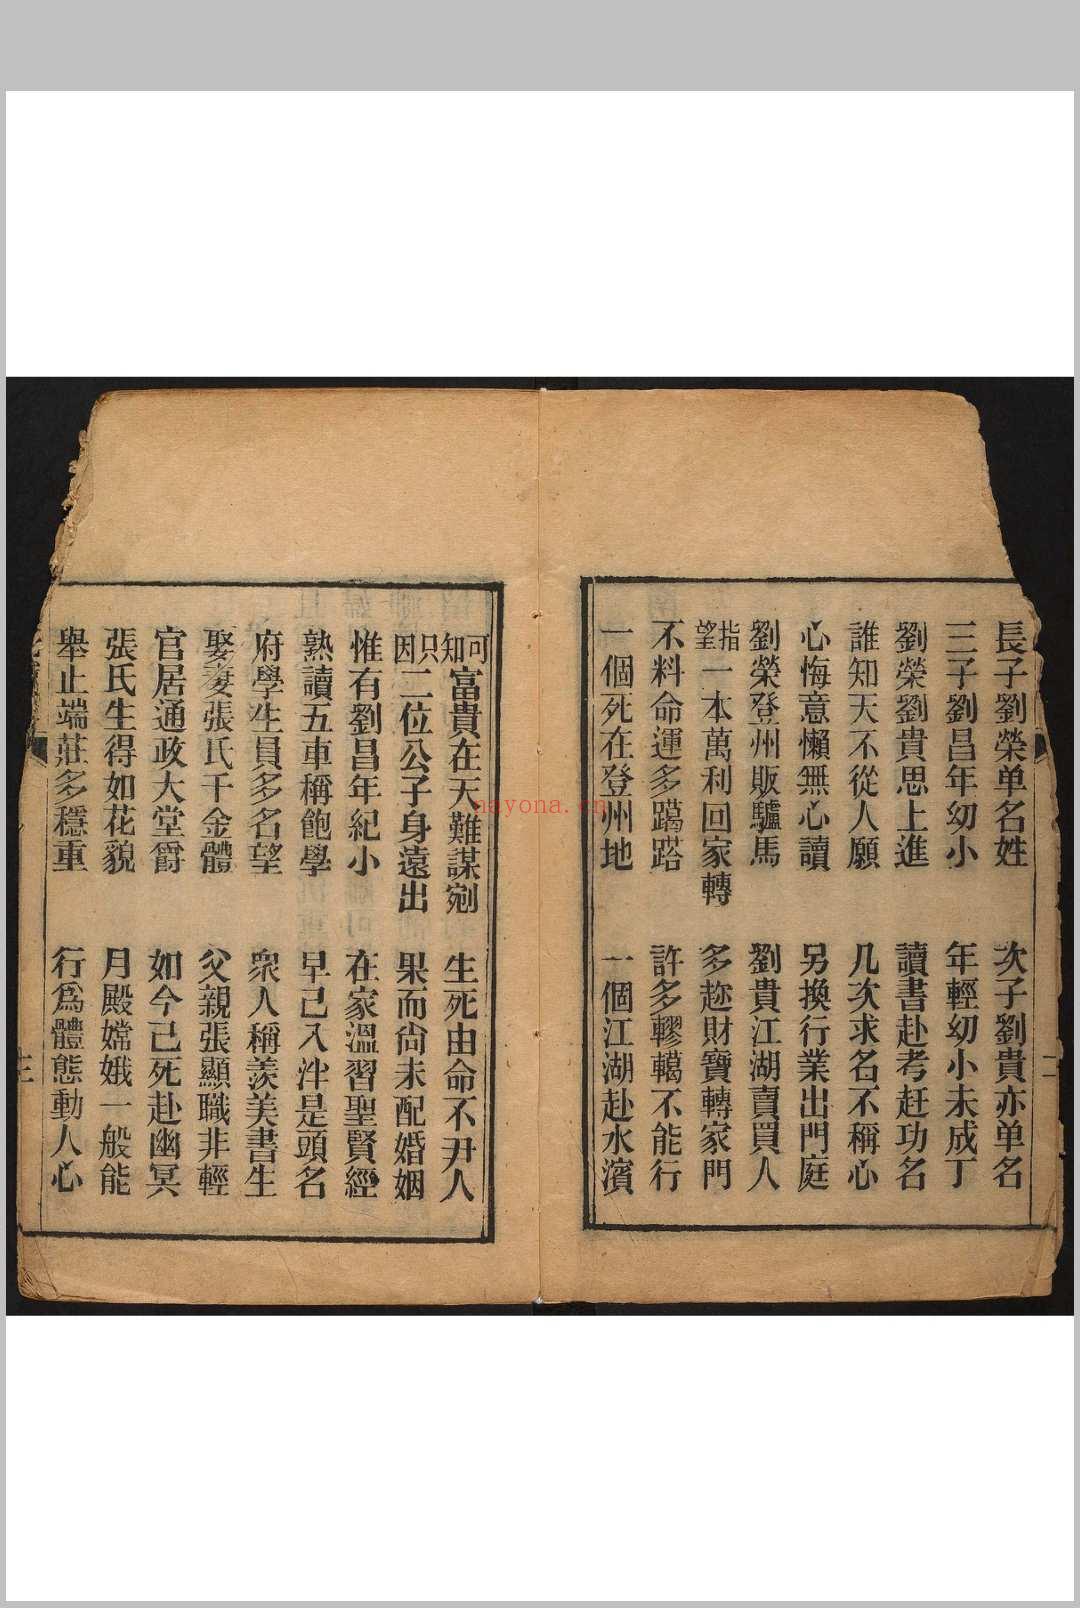 長子劉榮单名姓　次子劉貴亦单名
三子劉昌年幼小　年輕幼小未成丁
劉榮劉貴思上進　讀書赴考赶功名
誰知天不從人願　几次求名不稱心
心悔意懶無心讀　另換行業出門庭
劉榮登州販驢馬　劉貴江湖賣買人
指望一本萬利回家轉　多趂財寶轉家門
不料命運多蹋踏　許多轇轕不能行
一個死在登州地　一個江湖赴水濱
二
可知富貴在天難謀刱　生死由命不尹人
只因二位公子身遠出　果而尙未配婚姻
惟有劉昌年紀小　在家溫習聖賢經
熟讀五車稱飽學　早已入泮是頭名
府學生員多名望　衆人稱羨美書生
娶妻張氏千金體　父親張顯職非輕
官居通政大堂爵　如今已死赴幽冥
張氏生得如花貌　月殿嫦娥一般能
舉止端莊多穩重　行爲體態動人心
三
nayona.cn